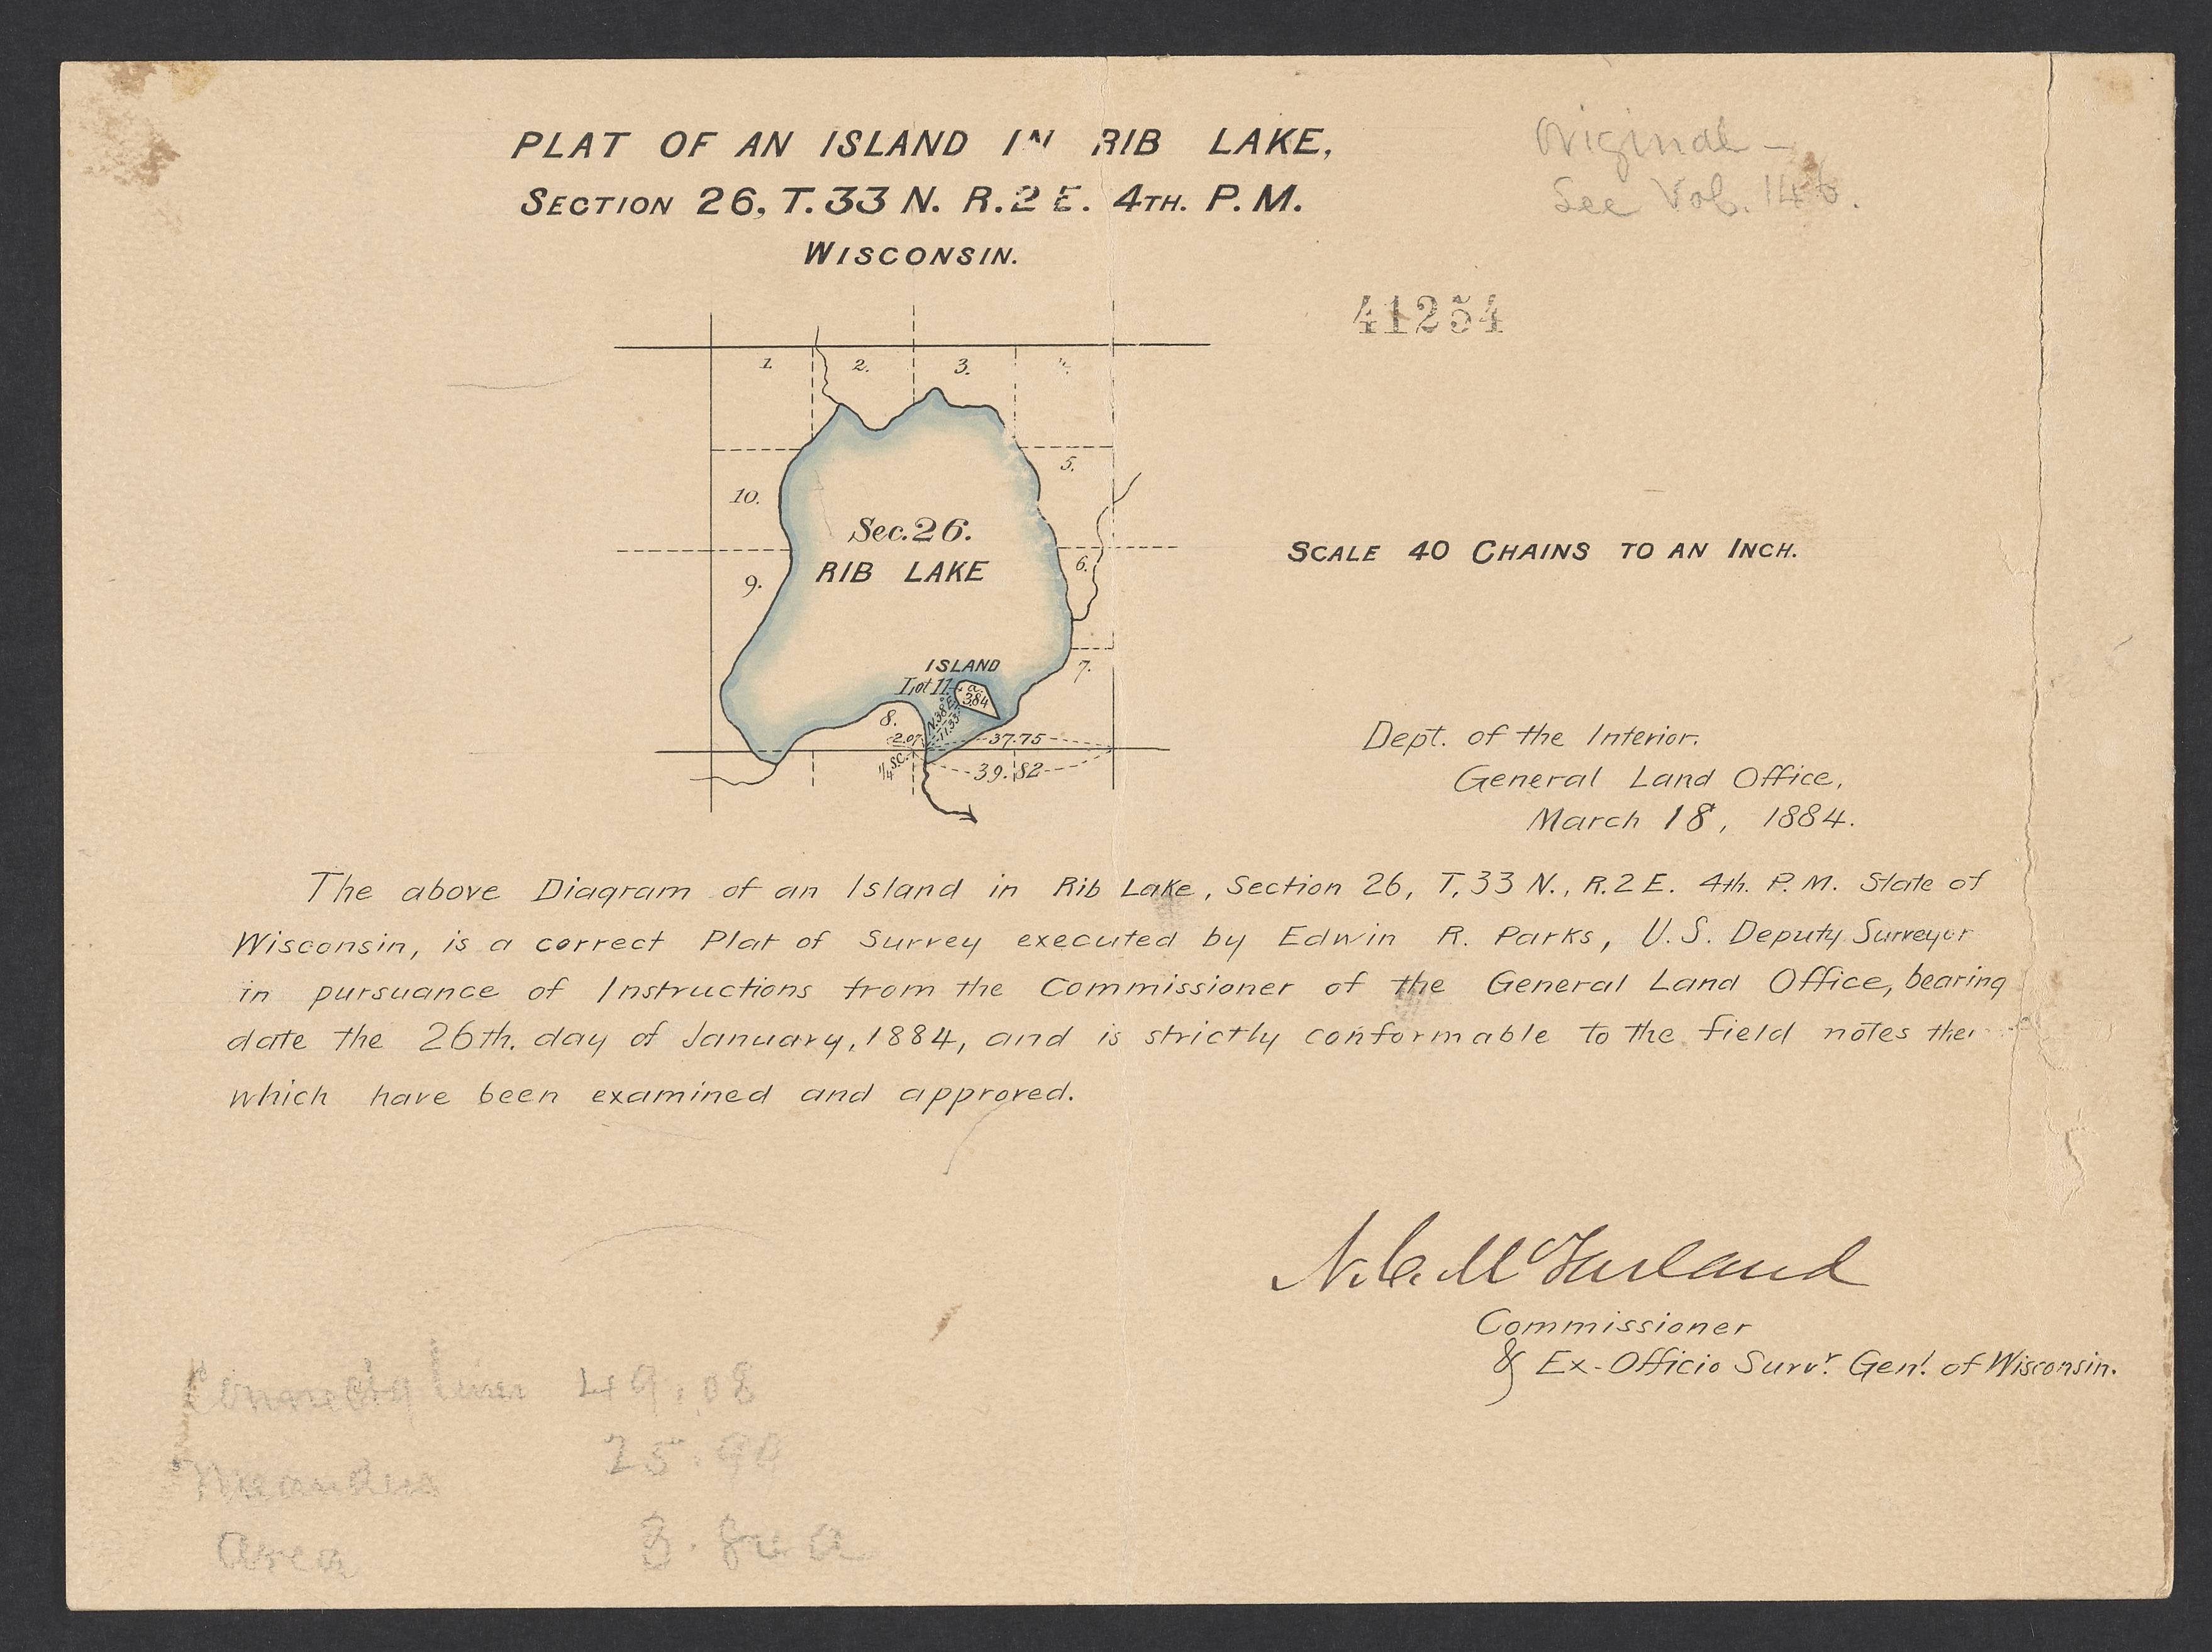 PLAT OF AN ISLAND IN RIB LAKE,
SECTION 26, T. 33 N. R. 2 E. 4TH. P. M.
WISCONSIN.
Original -
See Vol. 146.
41254
1. 2. 3. 4.
5.
10.
Sec. 26.
RIB LAKE
9.
6.
ISLAND
Lot 11.
a.
3.84
7.
8.
N. 38° E.
11.33
2.07
37.75
1/4 S.C.
39.82
SCALE 40 CHAINS TO AN INCH.
Dept. of the Interior.
General Land Office,
March 18, 1884.
The above Diagram of an Island in Rib Lake, Section 26, T. 33 N., R. 2 E. 4th. P. M. State of
Wisconsin, is a correct Plat of Survey executed by Edwin R. Parks, U. S. Deputy Surveyor
in pursuance of Instructions from the Commissioner of the General Land Office, bearing
date the 26th. day of January, 1884, and is strictly conformable to the field notes ther
which have been examined and approved.
N. C. McFarland
Commissioner
& Ex-Officio Survr. Genl. of Wisconsin.
49.08
Meanders 25.90
Area 3.